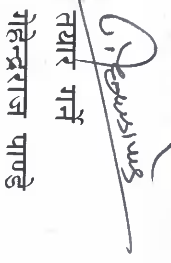 तयार गर्ने
महेन्द्रराज पाण्डे